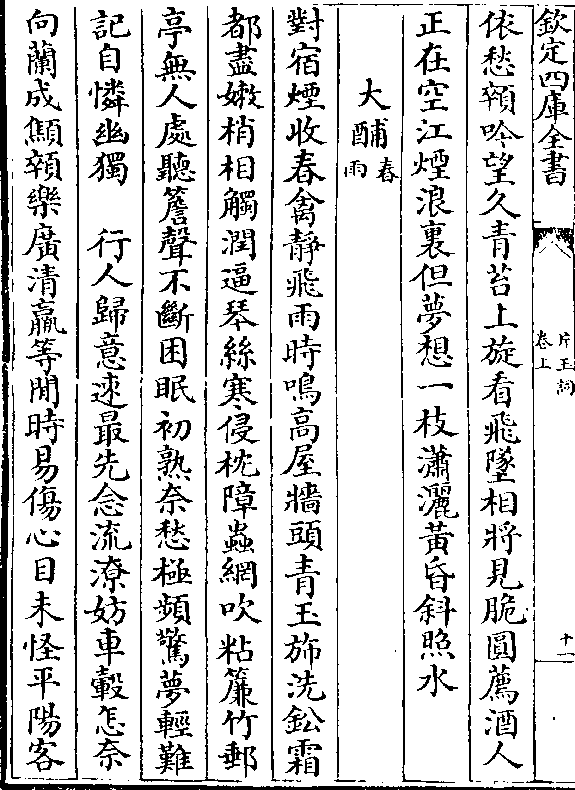 欽定四庫全書
片玉詞
卷上
十一
依愁顇吟望久青苔上旋看飛墜相將見脆圓薦酒人
正在空江煙浪裏但夢想一枝瀟灑黃昏斜照水
大酺春雨
對宿煙收春禽靜飛雨時鳴高屋牆頭青玉斾洗鈆霜
都盡嫰梢相觸潤逼琴絲寒侵枕障蟲網吹粘簾竹郵
亭無人處聽簷聲不斷困眠初熟奈愁極頻驚夢輕難
記自憐幽獨　行人歸意速最先念流潦妨車轂怎奈
向蘭成顦顇樂廣清羸等閒時易傷心目未怪平陽客